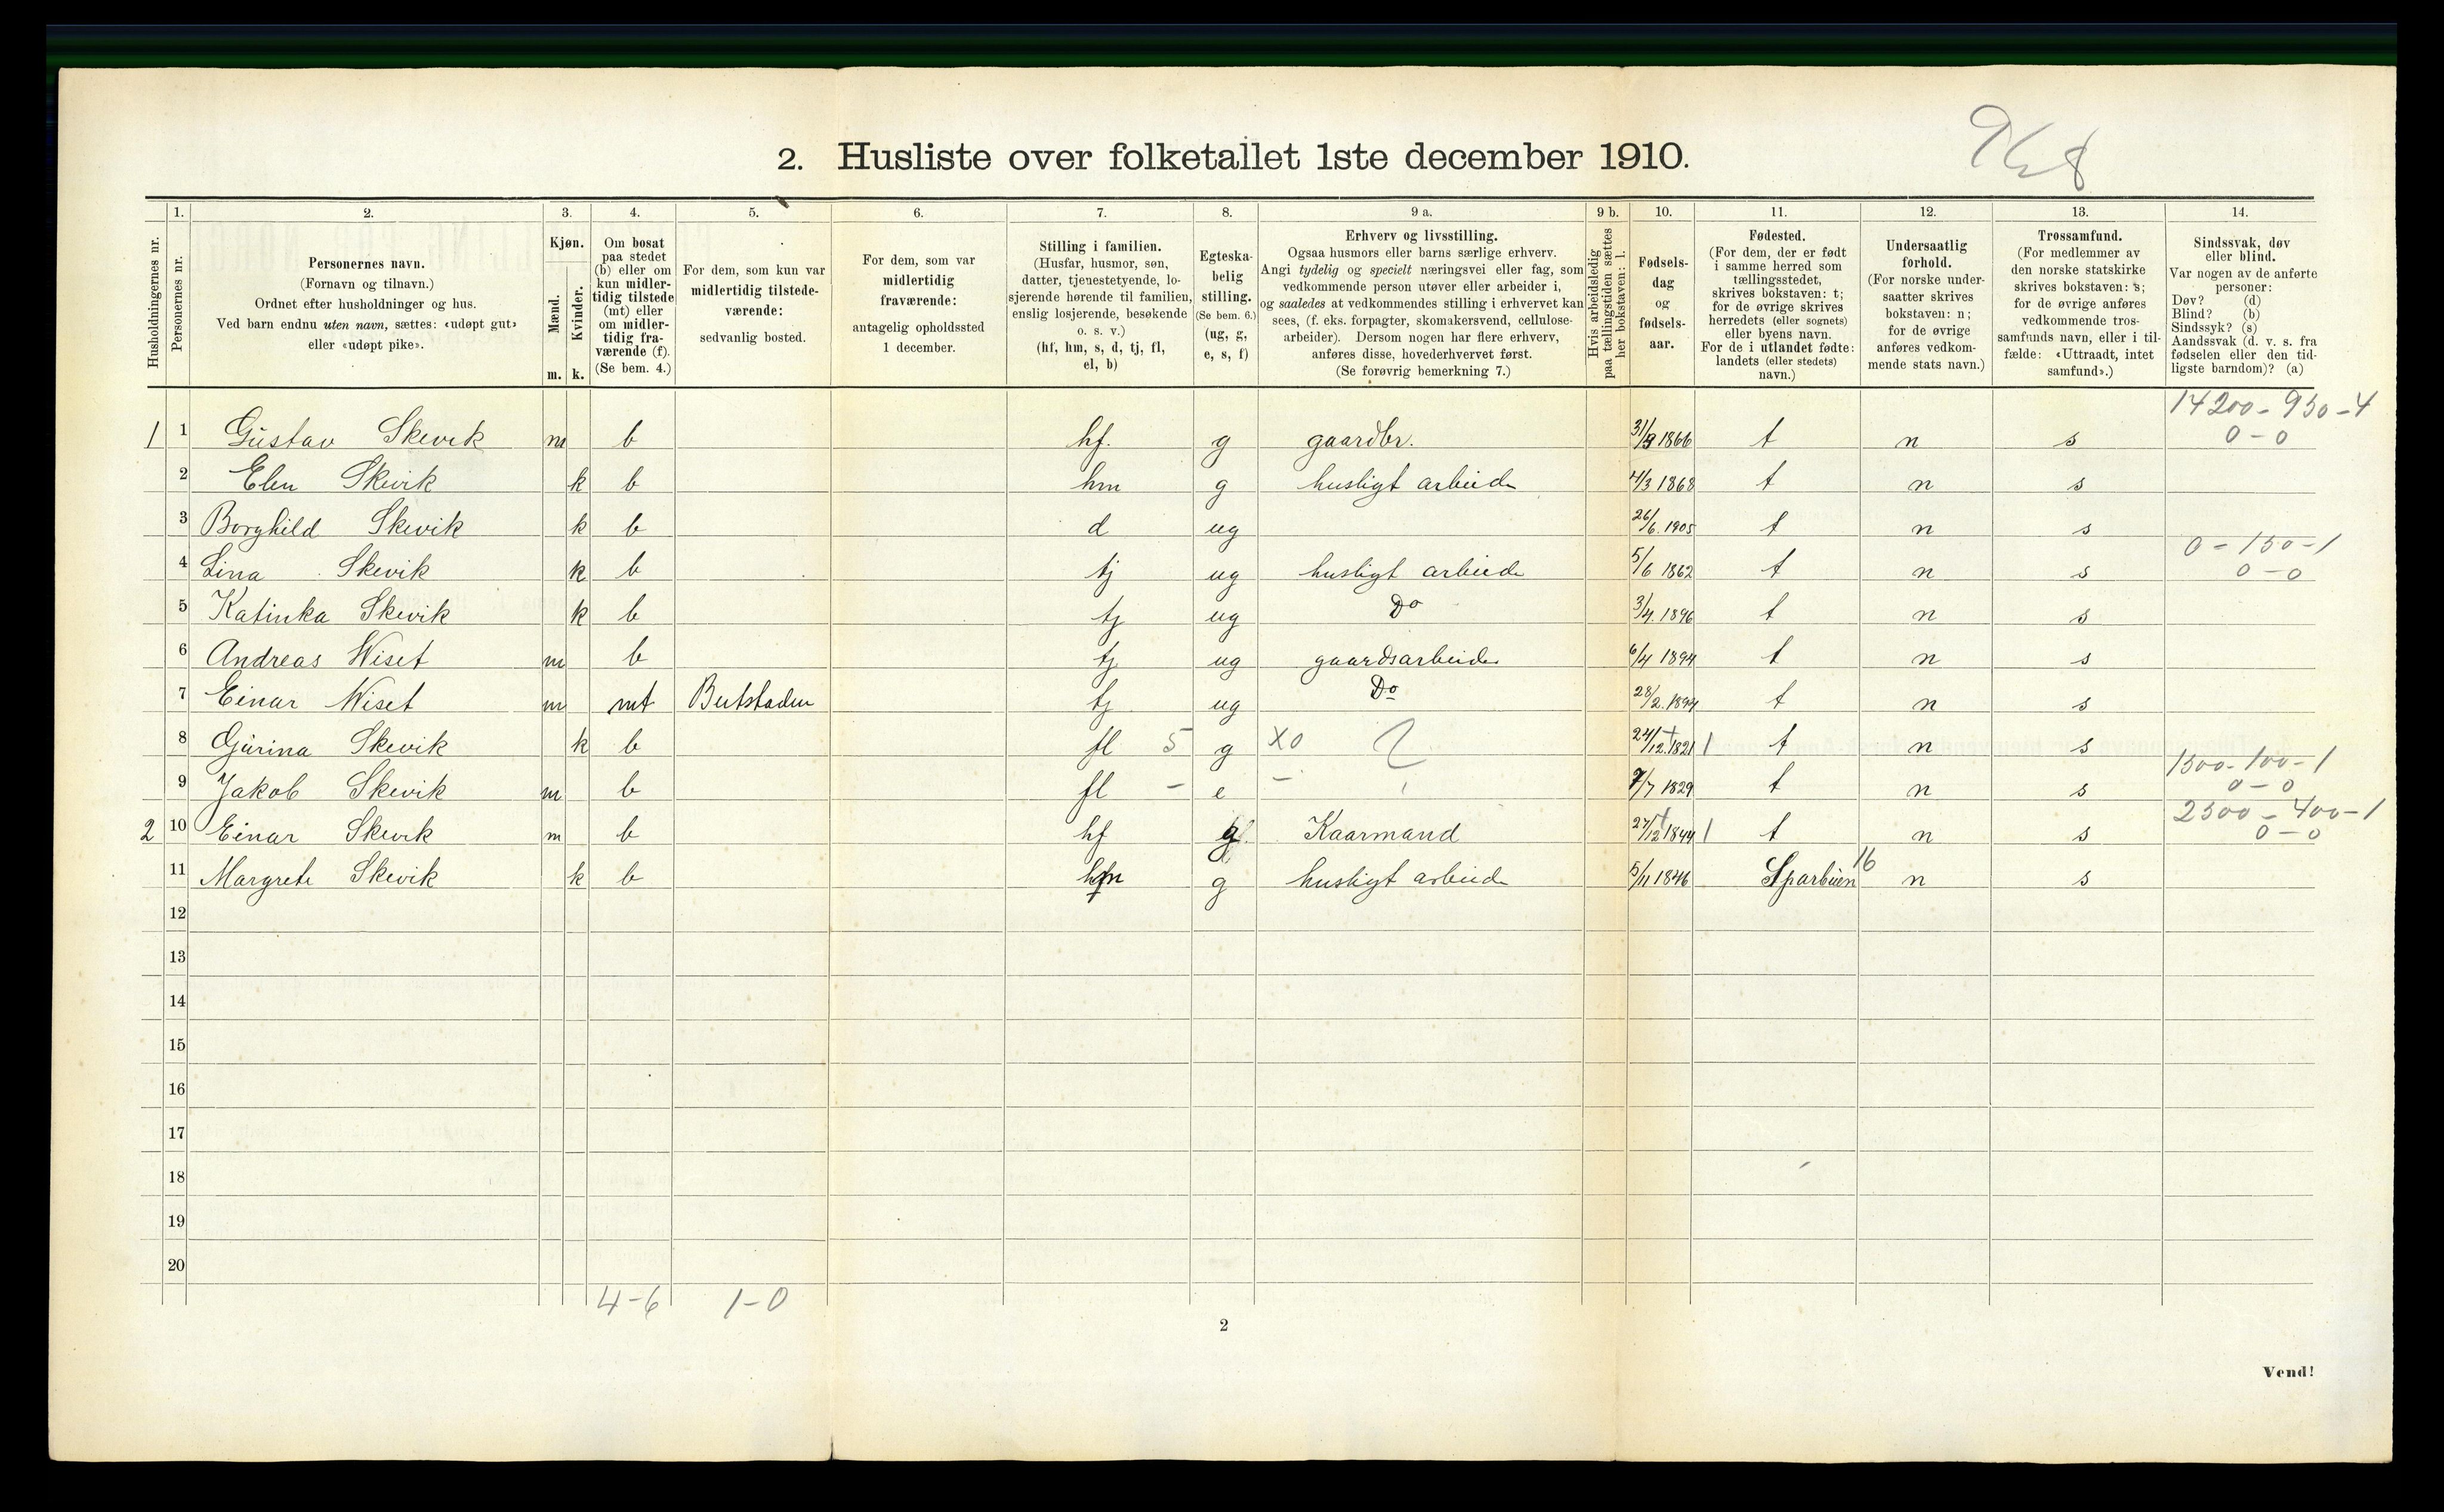 2. Husliste over folketallet 1ste december 1910.
Husholdningernes nr.
1.
Personernes nr.
2.
Personernes navn.
(Fornavn og tilnavn.)
Ordnet efter husholdninger og hus.
Ved barn endnu uten navn, sættes: «udøpt gut»
eller «udøpt pike».
3.
Kjøn.
Mænd.
Kvinder.
m. k.
4.
Om bosat
paa stedet
(b) eller om
kun midler-
tidig tilstede
(mt) eller
om midler-
tidig fra-
værende (f).
(Se bem. 4.)
5.
For dem, som kun var
midlertidig tilstede-
værende:
sedvanlig bosted.
6.
For dem, som var
midlertidig
fraværende:
antagelig opholdssted
1 december.
7.
Stilling i familien.
(Husfar, husmor, søn,
datter, tjenestetyende, lo-
sjerende hørende til familien,
enslig losjerende, besøkende
o. s. v.)
(hf, hm, s, d, tj, fl,
el, b)
8.
Egteska-
belig
stilling.
(Se bem. 6.)
(ug, g,
e, s, f)
9 a.
Erhverv og livsstilling.
Ogsaa husmors eller barns særlige erhverv.
Angi tydelig og specielt næringsvei eller fag, som
vedkommende person utøver eller arbeider i,
og saaledes at vedkommendes stilling i erhvervet kan
sees, (f. eks. forpagter, skomakersvend, cellulose-
arbeider). Dersom nogen har flere erhverv,
anføres disse, hovederhvervet først.
(Se forøvrig bemerkning 7.)
9 b.
Hvis arbeidsledig
paa tællingstiden sættes
her bokstaven: l.
10.
Fødsels-
dag
og
fødsels-
aar.
11.
Fødested.
(For dem, der er født
i samme herred som
tællingsstedet,
skrives bokstaven: t;
for de øvrige skrives
herredets (eller sognets)
eller byens navn.
For de i utlandet fødte:
landets (eller stedets)
navn.)
12.
Undersaatlig
forhold.
(For norske under-
saatter skrives
bokstaven: n;
for de øvrige
anføres vedkom-
mende stats navn.)
13.
Trossamfund.
(For medlemmer av
den norske statskirke
skrives bokstaven: s;
for de øvrige anføres
vedkommende tros-
samfunds navn, eller i til-
fælde: «Uttraadt, intet
samfund».)
14.
Sindssvak, døv
eller blind.
Var nogen av de anførte
personer:
Døv? (d)
Blind? (b)
Sindssyk? (s)
Aandssvak (d. v. s. fra
fødselen eller den tid-
ligste barndom)? (a)
14200-950-4
1 1 Gustav Skevik m b hf. g gaardbr. 31/3 1866 t n s 0-0
2 Elen Skevik k b hm g husligt arbeide 4/3 1868 t n s
3 Borghild Skevik k b d ug 26/6. 1905 t n s
0-150-1
4 Lina Skevik k b tj ug husligt arbeide 5/6 1862 t n s 0-0
5 Katinka Skevik k b tj ug Do 3/4. 1896 t n s
6 Andreas Wiset m b tj ug gaardsarbeide 6/4 1894 t n s
7 Einar Wiset m mt Butstaden tj ug Do 28/2. 1894 t n s
8 Gurina Skevik k b fl 5 g X0 24/12. 1821 1 t n s
1500-100-1
9 Jakob Skevik m b fl - e - 7/7 1829 t n s 0-0
2300-400-1
2 10 Einar Skevik m b hf g Kaarmand 27/12 1844 1 t n s 0-0
11 Margrete Skevik k b hm g husligt arbeide 5/11 1846 Sparbuen 16 n s
12
13
14
15
16
17
18
19
20
4-6 1-0
2
Vend!